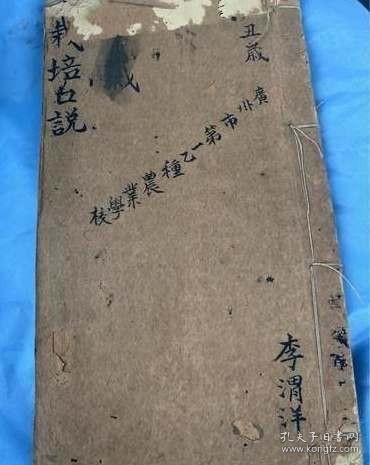 丑歲
廣州市第一乙種農業學校
李渭洋
歲
栽培各説
孔夫子旧书网
www.kongfz.com